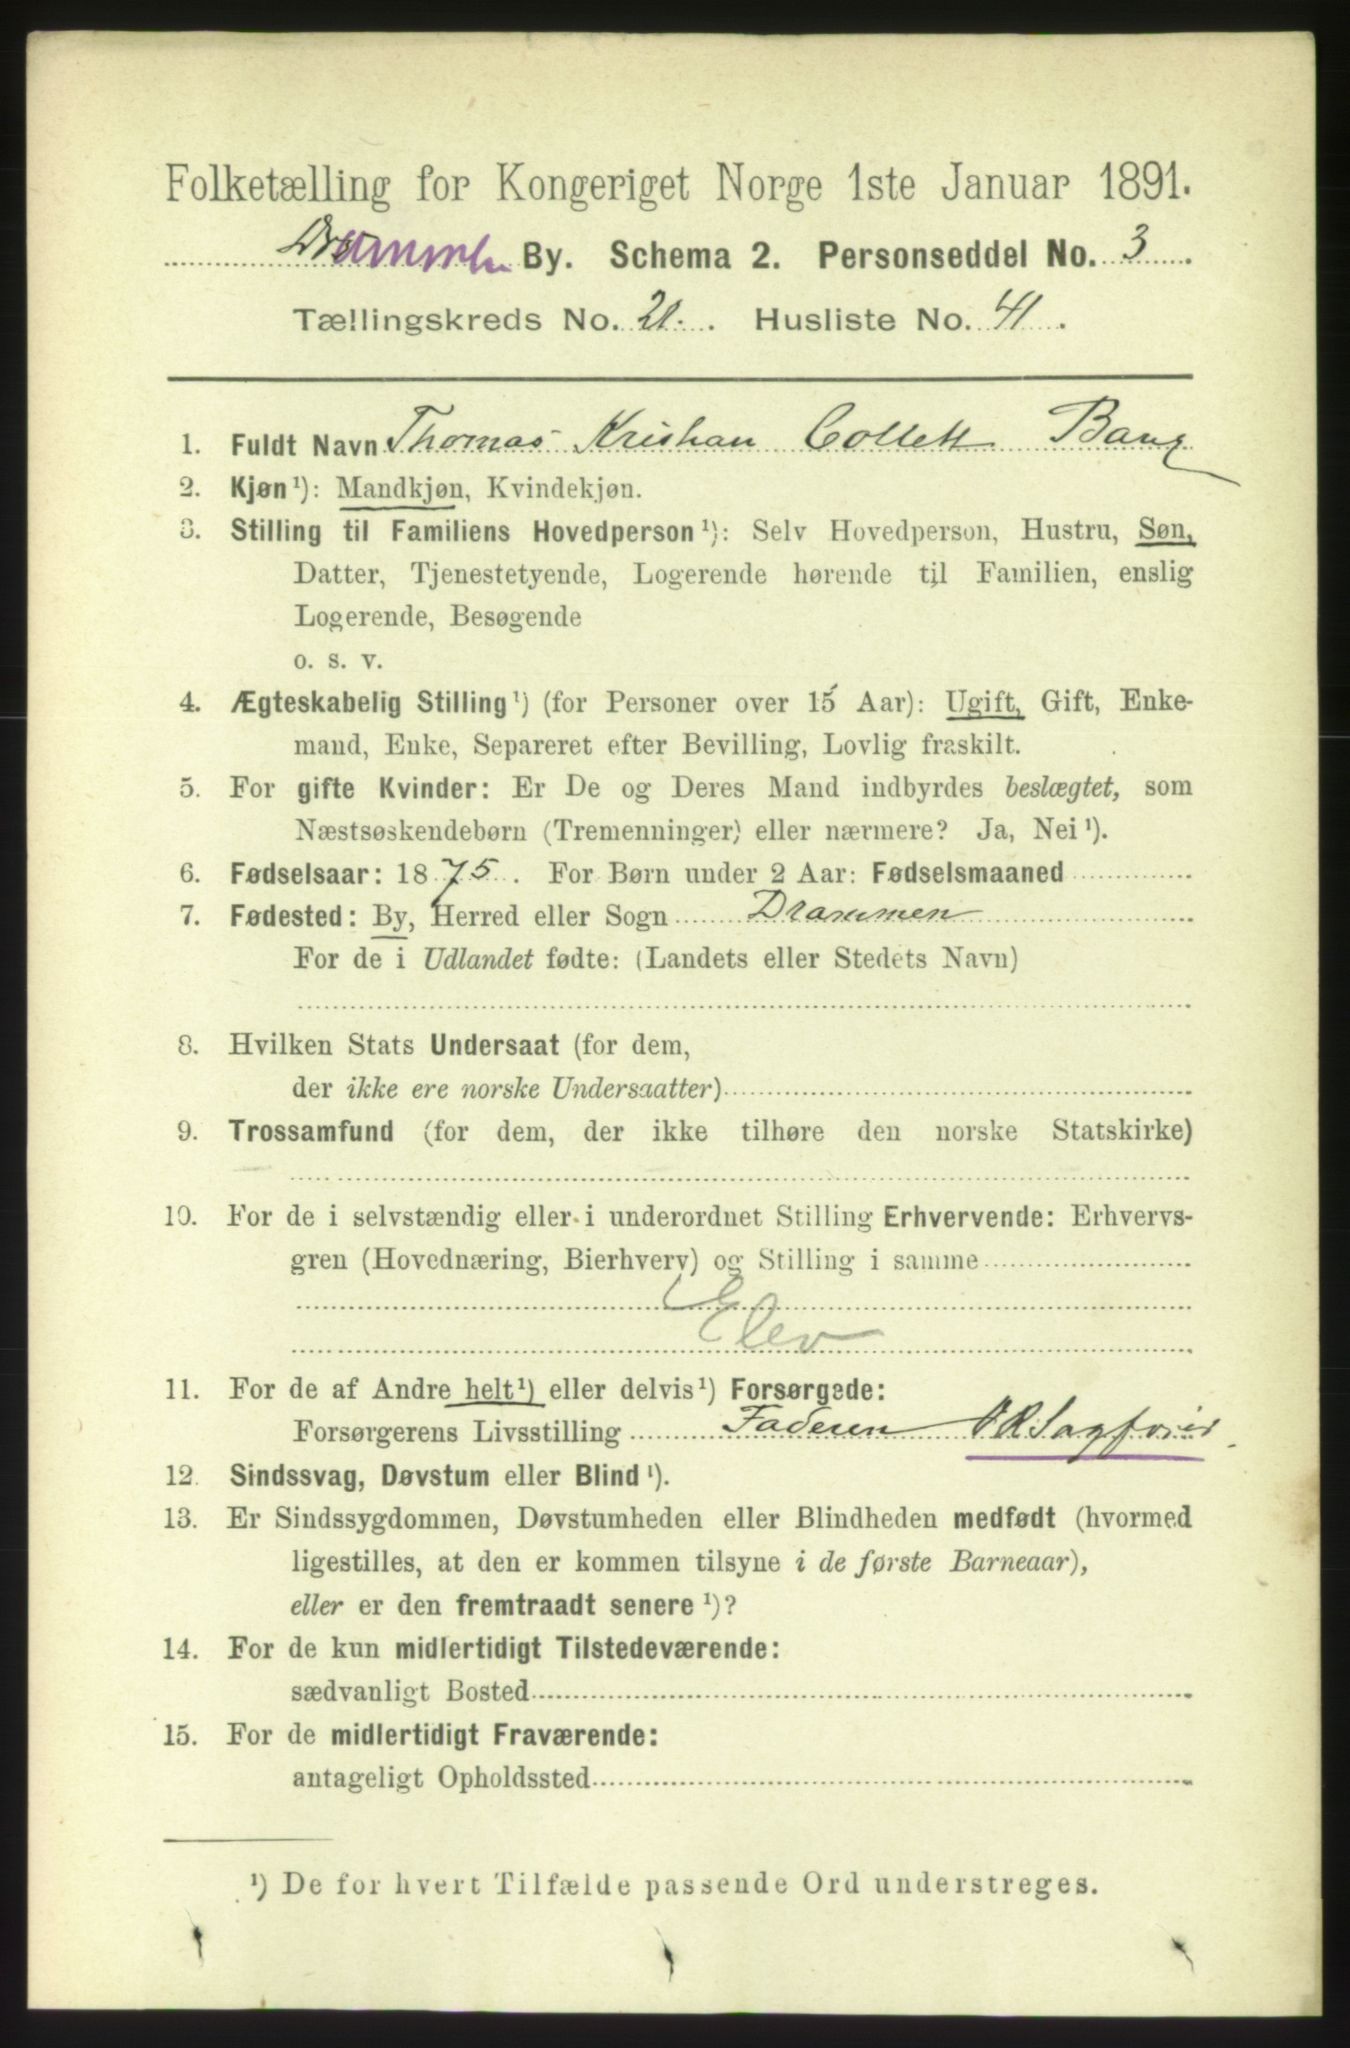 Folketælling for Kongeriget Norge 1ste Januar 1891.
Drammen By. Schema 2. Personseddel No. 3
Tællingskreds No. 21. Husliste No. 41.
1. Fuldt Navn Thomas Kristian Collett Bang
2. Kjøn¹): Mandkjøn, Kvindekjøn.
3. Stilling til Familiens Hovedperson¹): Selv Hovedperson, Hustru, Søn,
Datter, Tjenestetyende, Logerende hørende til Familien, enslig
Logerende, Besøgende
o. s. v.
4. Ægteskabelig Stilling¹) (for Personer over 15 Aar): Ugift, Gift, Enke-
mand, Enke, Separeret efter Bevilling, Lovlig fraskilt.
5. For gifte Kvinder: Er De og Deres Mand indbyrdes beslægtet, som
Næstsøskendebørn (Tremenninger) eller nærmere? Ja, Nei¹).
6. Fødselsaar: 1875. For Børn under 2 Aar: Fødselsmaaned
7. Fødested: By, Herred eller Sogn Drammen
For de i Udlandet fødte: (Landets eller Stedets Navn)
8. Hvilken Stats Undersaat (for dem,
der ikke ere norske Undersaatter)
9. Trossamfund (for dem, der ikke tilhøre den norske Statskirke)
10. For de i selvstændig eller i underordnet Stilling Erhvervende: Erhvervs-
gren (Hovednæring, Bierhverv) og Stilling i samme
Elev
11. For de af Andre helt¹) eller delvis¹) Forsørgede:
Forsørgerens Livsstilling Faderen O.R.Sagfører
12. Sindssvag, Døvstum eller Blind¹).
13. Er Sindssygdommen, Døvstumheden eller Blindheden medfødt (hvormed
ligestilles, at den er kommen tilsyne i de første Barneaar),
eller er den fremtraadt senere¹)?
14. For de kun midlertidigt Tilstedeværende:
sædvanligt Bosted
15. For de midlertidigt Fraværende:
antageligt Opholdssted
¹) De for hvert Tilfælde passende Ord understreges.